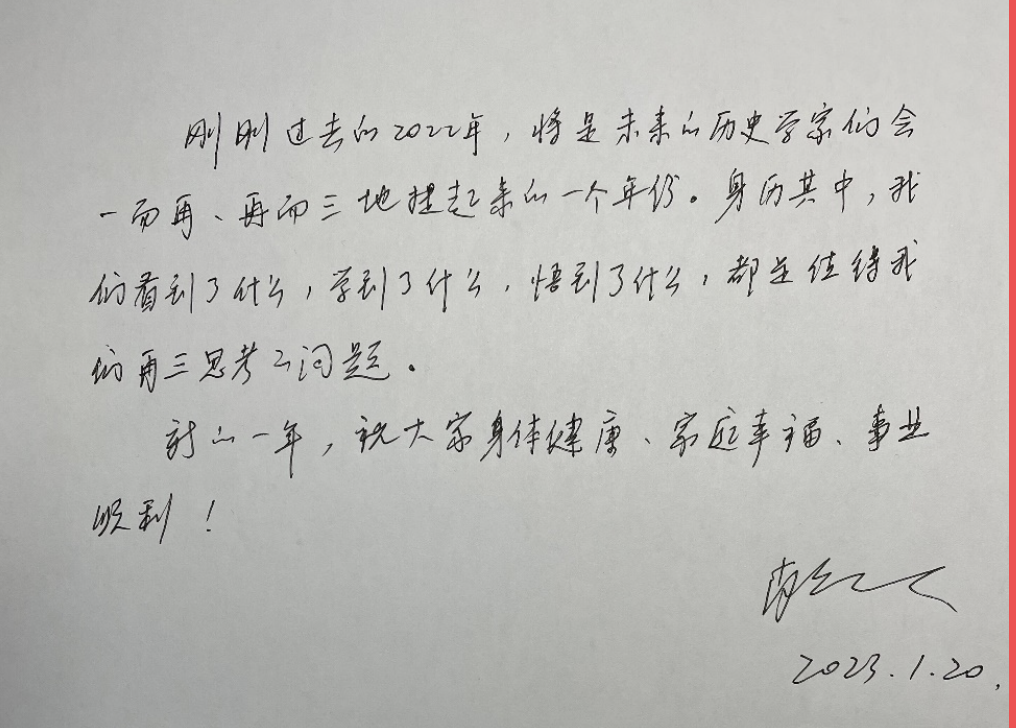 刚刚过去的2022年，将是未来的历史学家们会
一而再、再而三地提起来的一个年份。身历其中，我
们看到了什么，学到了什么，悟到了什么，都是值得我
们再三思考之问题。
新的一年，祝大家身体健康、家庭幸福、事业
顺利！
2023.1.20.